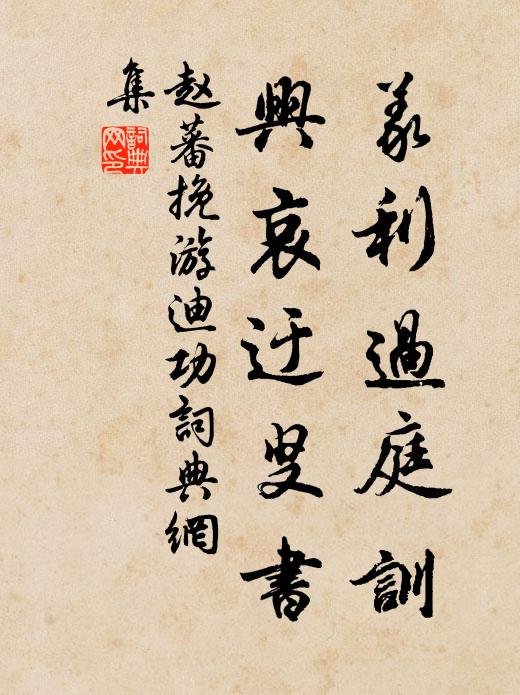 義利過庭訓
興哀迂叟書
赵蕃挽游迪功詞典網
集
詞典
网印